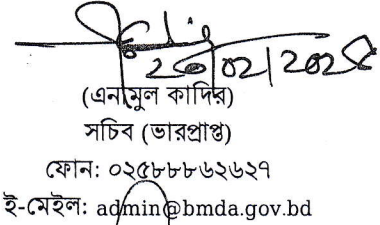 (এনামুল কাদির)
সচিব (ভারপ্রাপ্ত)
ফোন: ০২৫৮৮৮৬২৬২৭
ই-মেইল: admin@bmda.gov.bd